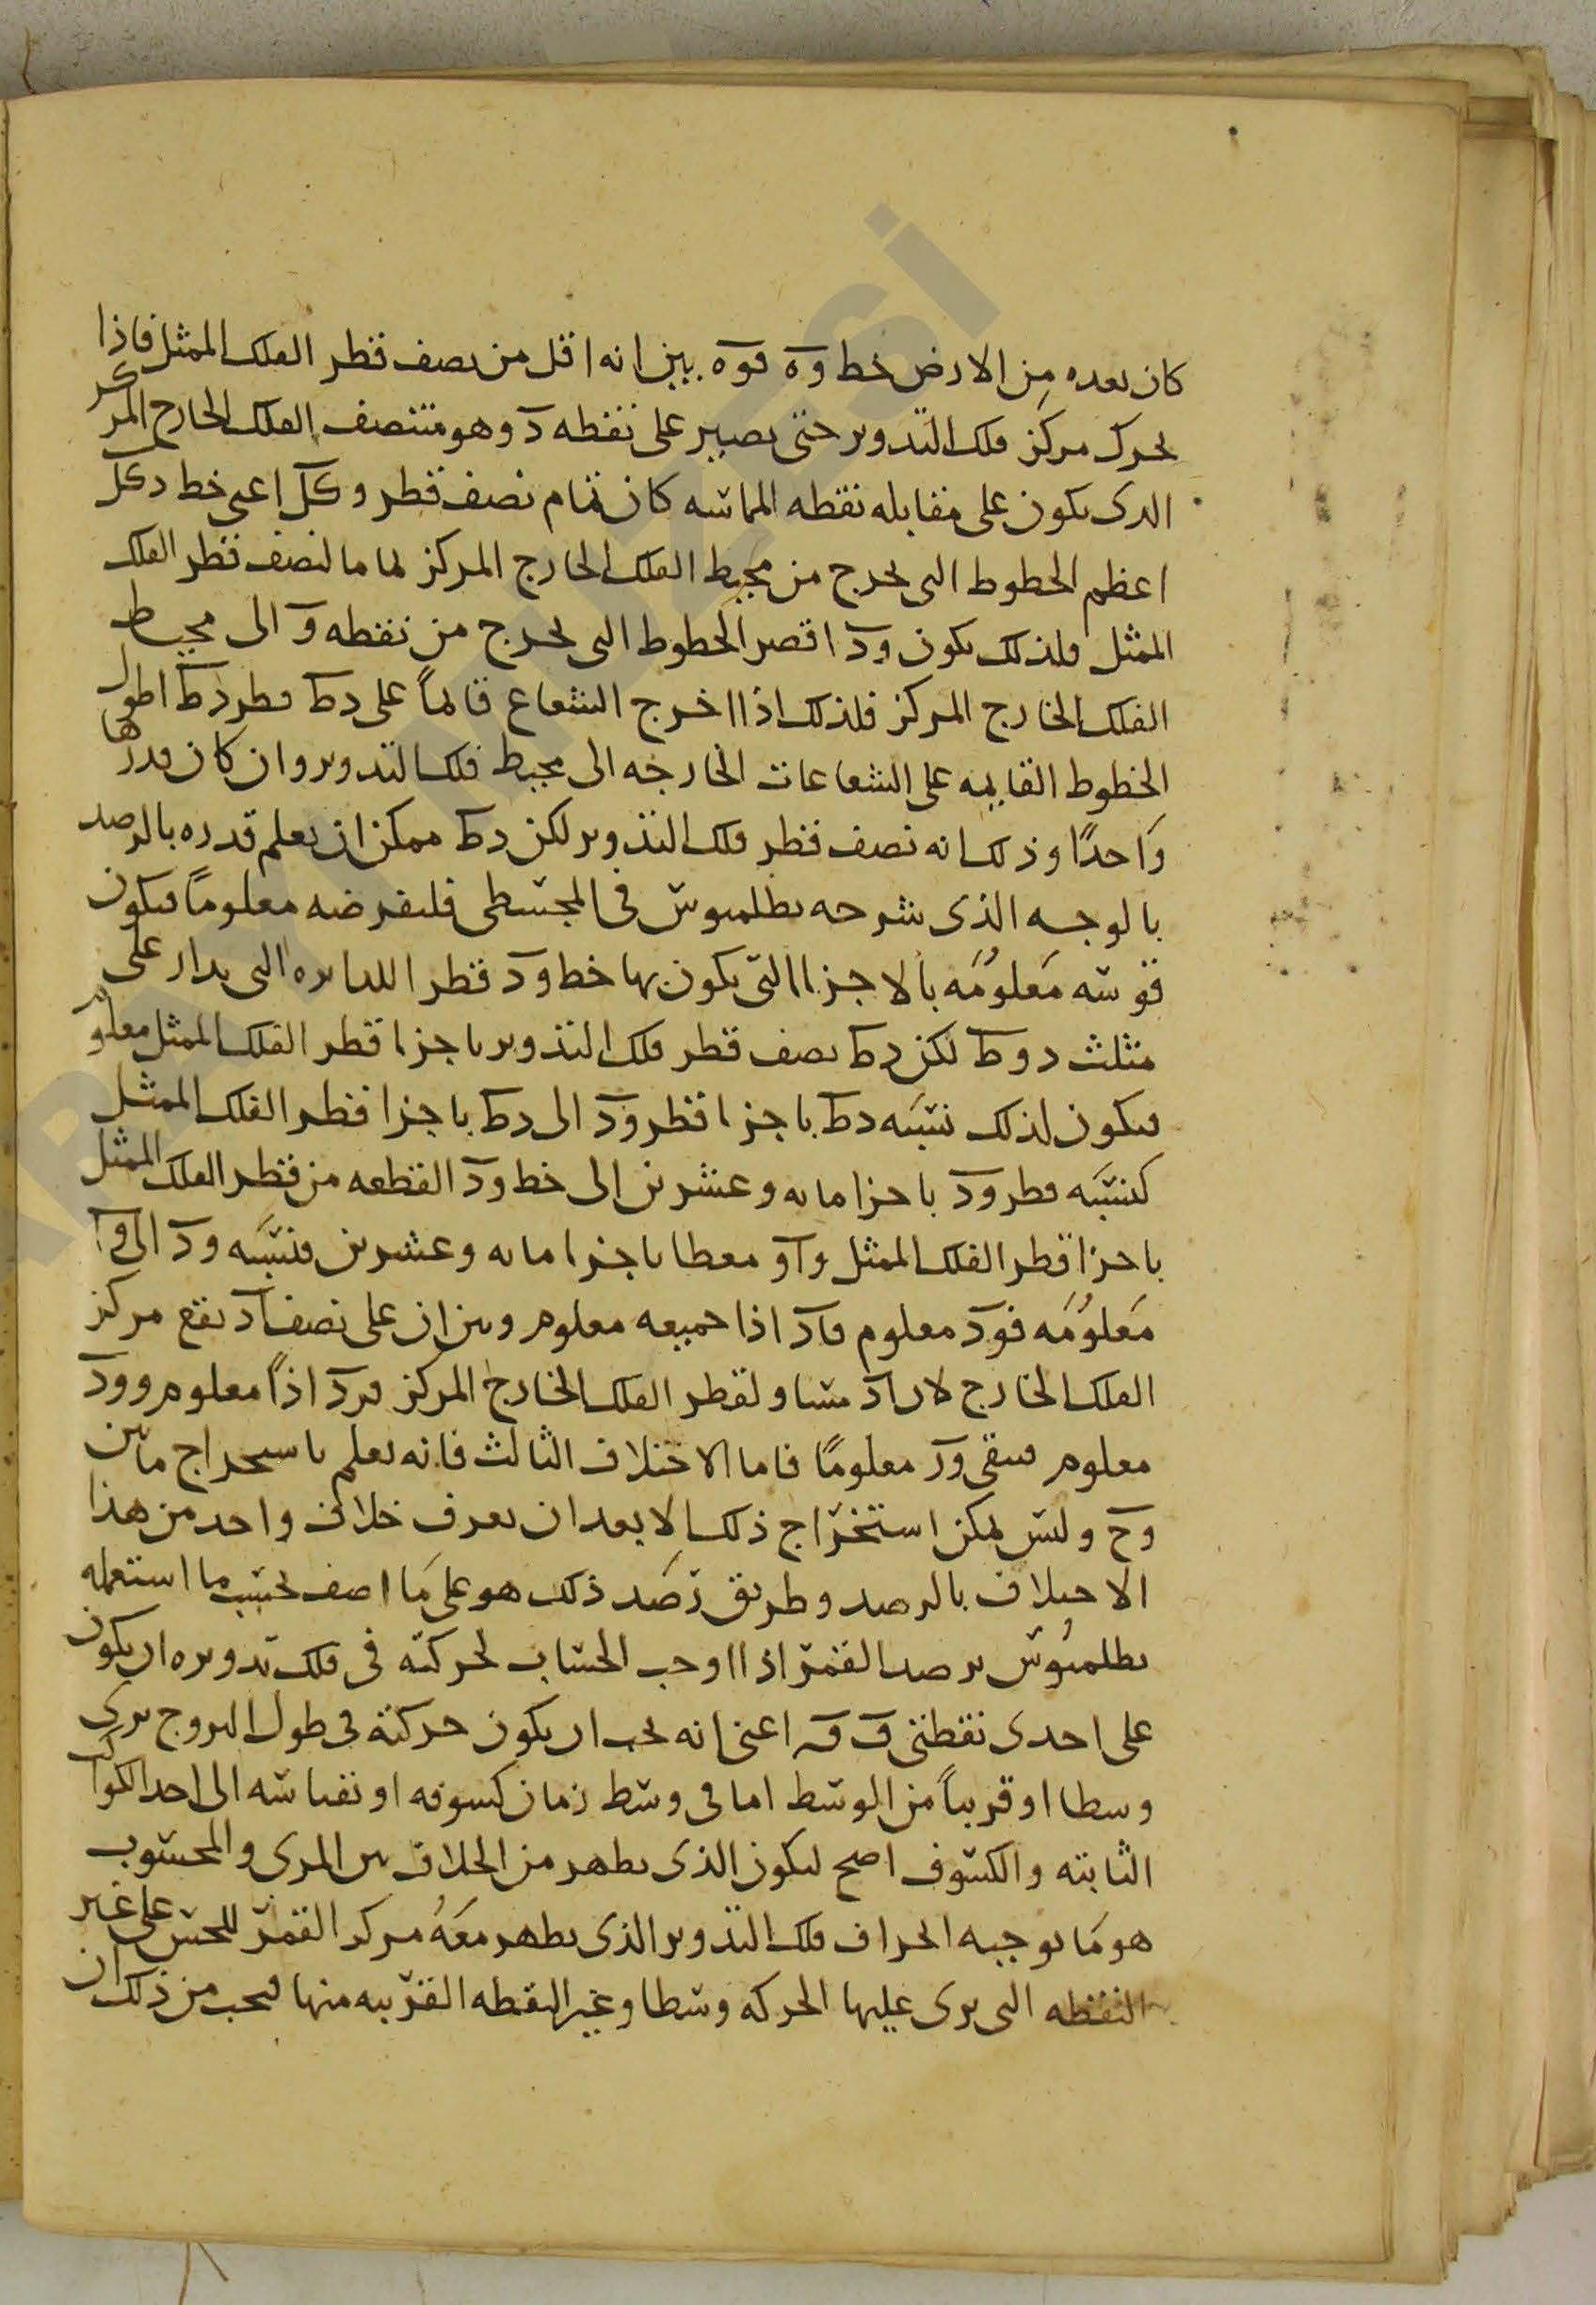 كان بعده من الارض خط وه فوه بين انه اقل من نصف قطر الفلك الممثل فاذا
تحرك مركز فلك التدوير حتى يصير على نقطه د وهو منتصف الفلك الخارج المركز
الذى يكون على مقابله نقطه المماسه كان تمام نصف قطر وكل اعنى خط دكل
اعظم الخطوط التى تخرج من محيط الفلك الخارج المركز لما ما لنصف قطر الفلك
الممثل فلذلك يكون ود اقصر الخطوط التى تخرج من نقطه و الى محيط
الفلك الخارج المركز فلذلك اذا اخرج الشعاع قائماً على دط فطر دط اطول
الخطوط القايمه على الشعاعات الخارجه الى محيط فلك التدوير وان كان قدرها
واحدًا وذلك انه نصف قطر فلك التدوير لكن دط ممكن ان يعلم قدره بالرصد
بالوجه الذى شرحه بطلميوس فى المجسطى فليفرضه معلوماً فيكون
قوسه معلومه بالاجزا التى يكون بها خط ود قطر الدايره التى يدار على
مثلث دوط لكن دط نصف قطر فلك التدوير باجزا قطر الفلك الممثل معلوم
فيكون لذلك نسبه دط باجزا قطر ود الى دط باجزا قطر الفلك الممثل
كنسبه قطر ود باجزا مايه وعشرين الى خط ود القطعه من قطر الفلك الممثل
باجزا قطر الفلك الممثل واو معطا باجزا مايه وعشرين فنسبه ود الى وا
معلومه فود معلوم فاد اذا جميعه معلوم وبين ان على نصف اد يقع مركز
الفلك الخارج لان اد مساو لقطر الفلك الخارج المركز فرد اذاً معلوم وود
معلوم فيبقى ور معلومًا فاما الاختلاف الثالث فانه يعلم باستخراج ما بين
وح وليس يمكن استخراج ذلك الا بعد ان يعرف خلاف واحد من هذا
الاختلاف بالرصد وطريق رصد ذلك هو على ما اصف بحسب ما استعمله
بطلميوس يرصد القمر اذا اوجب الحساب لحركته فى فلك تدويره ان يكون
على احدى نقطتى اعنى انه يجب ان يكون حركته فى طول البروج يرى
وسطا او قريباً من الوسط اما فى وسط زمان كسوفه او بقياسه الى احد الكواكب
الثابته والكسوف اصح ليكون الذى يظهر من الخلاف بين المرى والمحسوب
هو ما يوجبه انحراف فلك التدوير الذى يظهر معه مركز القمر للحس على غير
النقطه التى يرى عليها الحركه وسطا وغير النقطه القريبه منها فيجب من ذلك ان